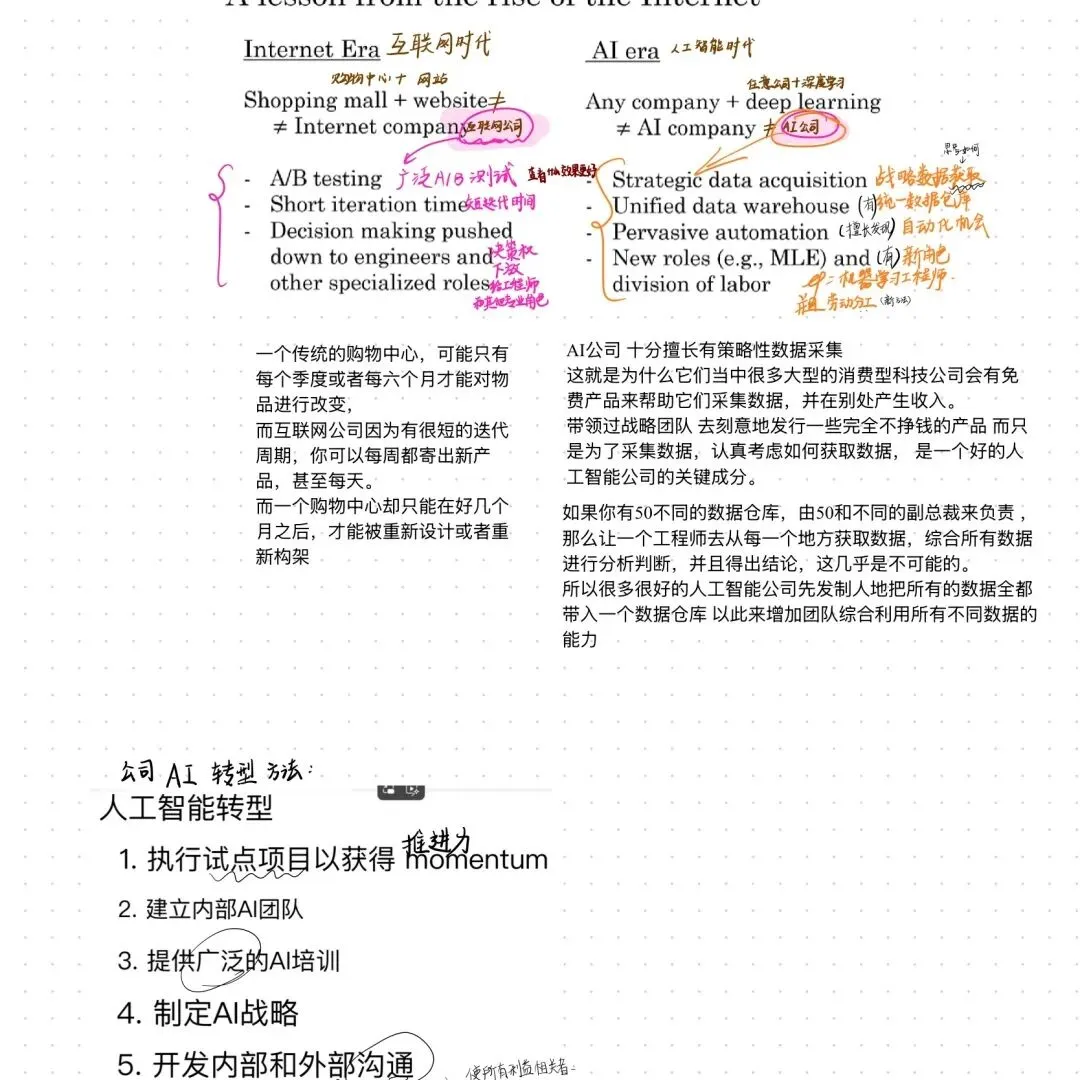 A lesson from the rise of the Internet
Internet Era 互联网时代
购物中心+ 网站
Shopping mall + website≠
≠ Internet company 互联网公司
- A/B testing 广泛A/B测试 查看什么效果更好
- Short iteration time 短迭代时间
- Decision making pushed
down to engineers and 决策权
下放
other specialized roles 给工程师
和其他专业角色
AI era 人工智能时代
任意公司+深度学习
Any company + deep learning
≠ AI company ≠ AI公司
思考如何
- Strategic data acquisition 战略数据获取
- Unified data warehouse (有)统一数据仓库
- Pervasive automation (擅长发现) 自动化机会
- New roles (e.g., MLE) and (有)新角色
division of labor 机器学习工程师
劳动分工
一个传统的购物中心，可能只有
每个季度或者每六个月才能对物
品进行改变，
而互联网公司因为有很短的迭代
周期，你可以每周都寄出新产
品，甚至每天。
而一个购物中心却只能在好几个
月之后，才能被重新设计或者重
新构架
AI公司 十分擅长有策略性数据采集
这就是为什么它们当中很多大型的消费型科技公司会有免
费产品来帮助它们采集数据，并在别处产生收入。
带领过战略团队 去刻意地发行一些完全不挣钱的产品 而只
是为了采集数据，认真考虑如何获取数据， 是一个好的人
工智能公司的关键成分。
如果你有50不同的数据仓库，由50和不同的副总裁来负责，
那么让一个工程师去从每一个地方获取数据，综合所有数据
进行分析判断，并且得出结论，这几乎是不可能的。
所以很多很好的人工智能公司先发制人地把所有的数据全都
带入一个数据仓库 以此来增加团队综合利用所有不同数据的
能力
公司 AI 转型 方法：
人工智能转型
推进力
1. 执行试点项目以获得 momentum
2. 建立内部AI团队
3. 提供广泛的AI培训
4. 制定AI战略
5. 开发内部和外部沟通
使所有利益相关者